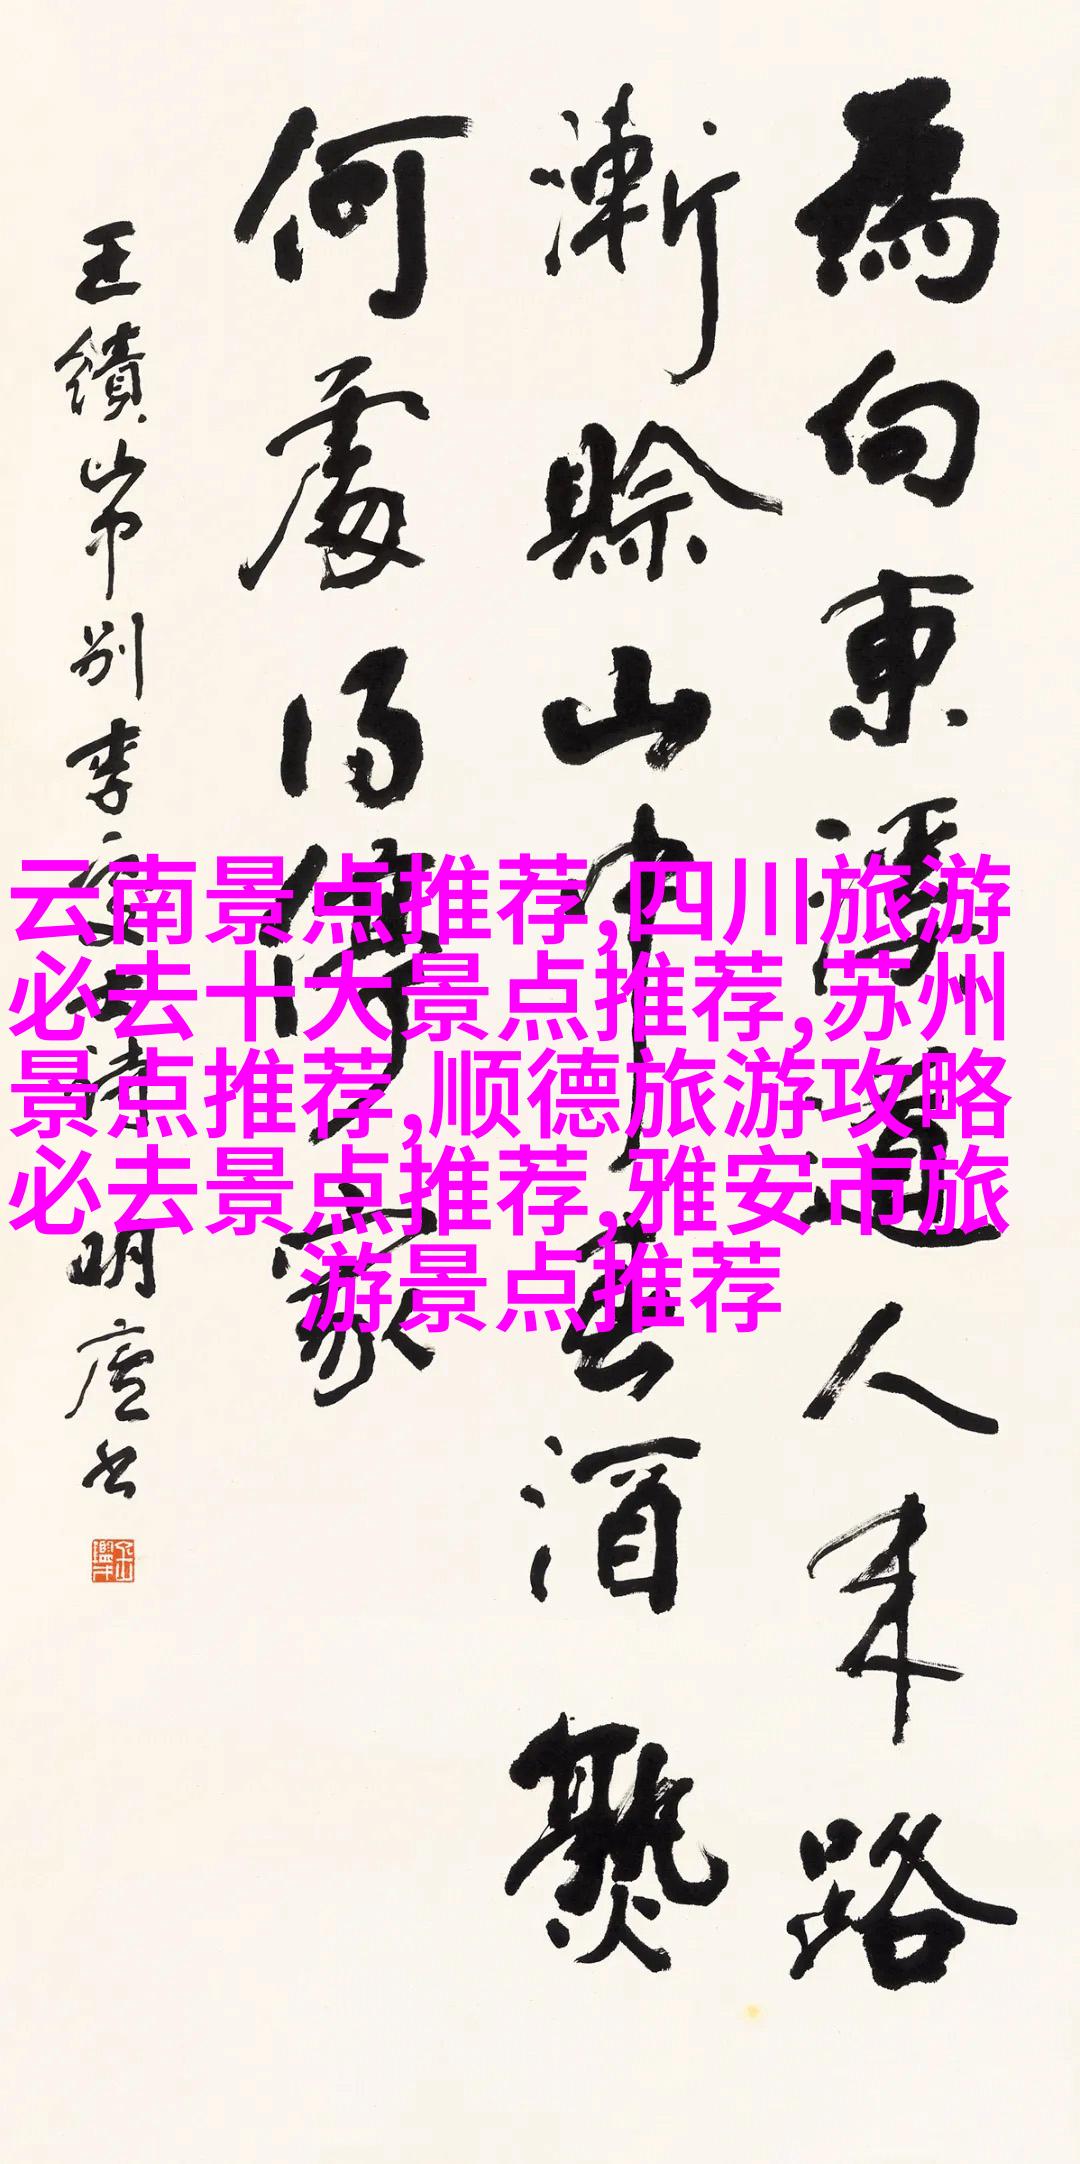 為向東溪道人来路
漸賒山中春酒熟
何處得停家
王績山中别李處士詩 明廬书
云南景点推荐,四川旅游
必去十大景点推荐,苏州
景点推荐,顺德旅游攻略
必去景点推荐,雅安市旅
游景点推荐